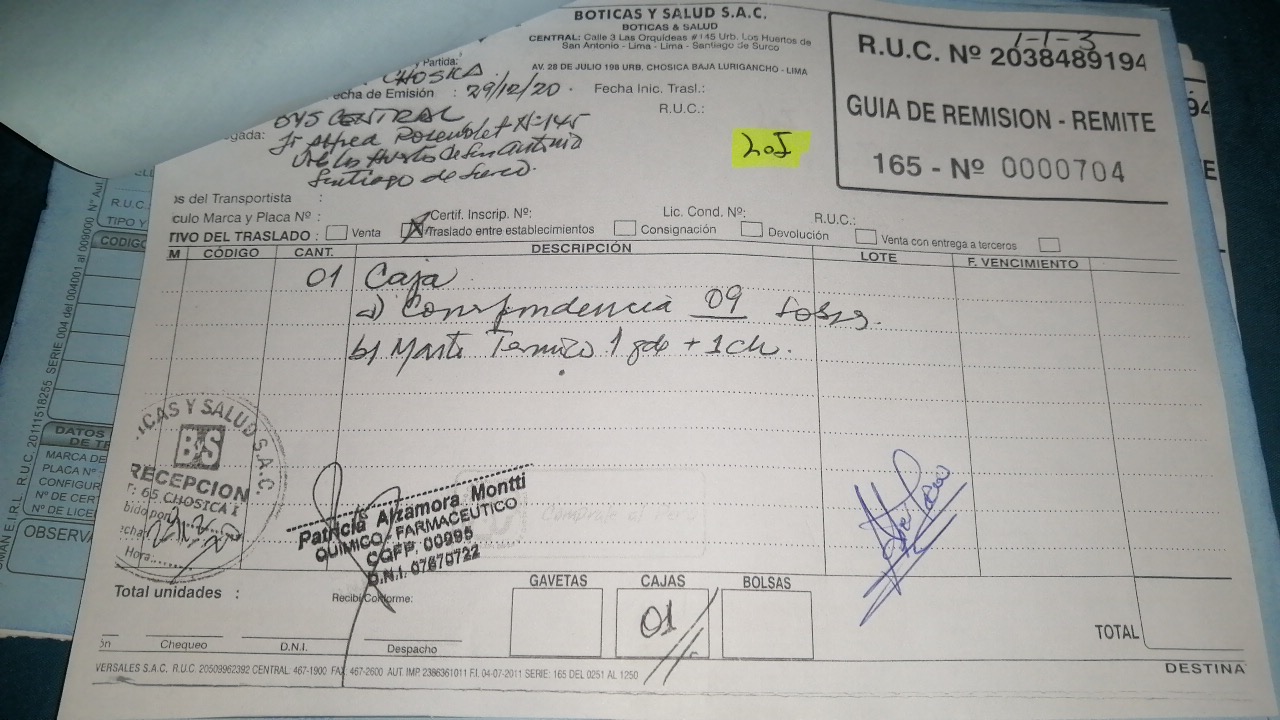 BOTICAS Y SALUD S.A.C.
BOTICAS & SALUD
CENTRAL: Calle 3 Las Orquideas # 145 Urb. Los Huertos de
San Antonio - Lima - Lima - Santiago de Surco
AV. 28 DE JULIO 198 URB. CHOSICA BAJA LURIGANCHO - LIMA
1-1-3
R.U.C. Nº 2038489194
GUIA DE REMISION - REMITE
165 - Nº 0000704
y Partida:
CHOSICA
echa de Emisión : 29/12/20. Fecha Inic. Trasl.:
BYS CENTRAL
R.U.C.:
gada:
Santiago de Surco.
os del Transportista :
culo Marca y Placa Nº : Certif. Inscrip. Nº: Lic. Cond. Nº: R.U.C.:
TIVO DEL TRASLADO : Venta X Traslado entre establecimientos Consignación Devolución Venta con entrega a terceros
M CÓDIGO CANT. DESCRIPCIÓN LOTE F. VENCIMIENTO
01 Caja
a) 09
b) Termico 1 + 1 ch.
ICAS Y SALUD S.A.C.
B&S
RECEPCION
T: 65 CHOSICA I
bido por
echa
Hora
Patricia Alzamora Montti
QUIMICO / FARMACEUTICO
CQFP. 00995
D.N.I. 07670722
Total unidades :
Recibí Conforme:
GAVETAS CAJAS BOLSAS
01
TOTAL
ón Chequeo D.N.I. Despacho
VERSALES S.A.C. R.U.C. 20509962392 CENTRAL: 467-1900 FAX: 467-2600 AUT. IMP. 2386361011 F.I. 04-07-2011 SERIE: 165 DEL 0251 AL 1250
DESTINA
R.U.C.
TIPO Y
CODIGO
DATOS
DE T
MARCA DE
PLACA Nº
CONFIGUR
Nº DE CERT
Nº DE LICE
OBSERVA
R.U.C. 20111518255 SERIE 004 del 004001 al 009000